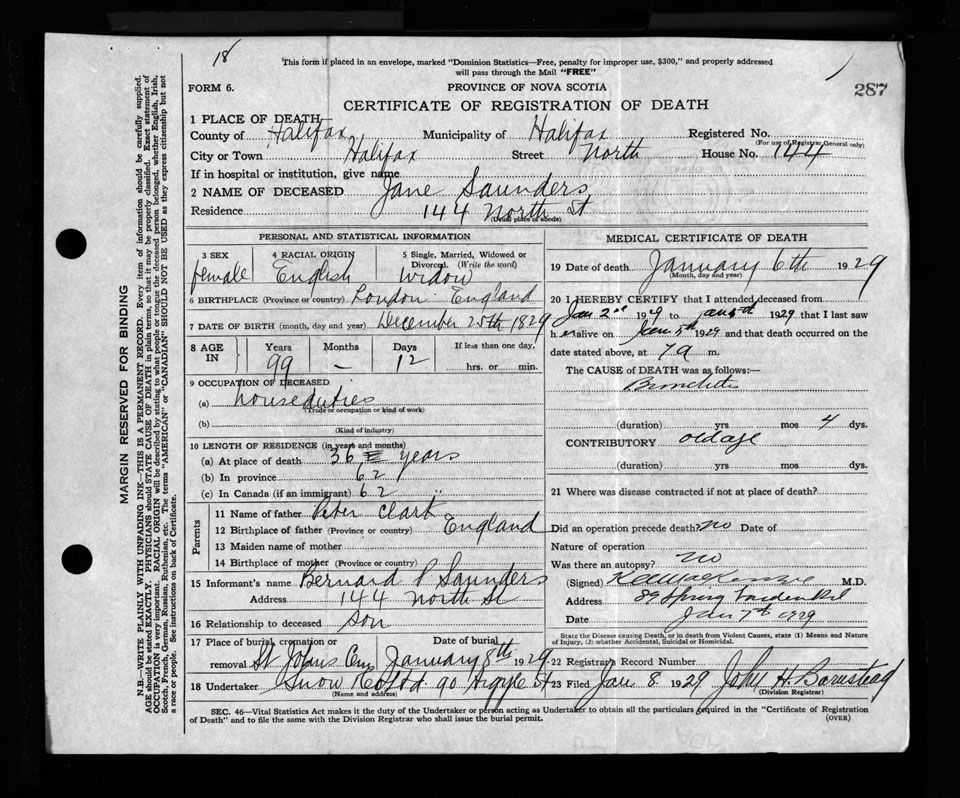 18
This form if placed in an envelope, marked "Dominion Statistics—Free, penalty for improper use, $300," and properly addressed
will pass through the Mail "FREE"
287
FORM 6.
PROVINCE OF NOVA SCOTIA
CERTIFICATE OF REGISTRATION OF DEATH
1 PLACE OF DEATH
County of Halifax Municipality of Halifax Registered No.
(For use of Registrar General only)
City or Town Halifax Street North House No. 144
If in hospital or institution, give name
2 NAME OF DECEASED Jane Saunders
Residence 144 North St
(Usual place of abode)
PERSONAL AND STATISTICAL INFORMATION
3 SEX 4 RACIAL ORIGIN 5 Single, Married, Widowed or Divorced. (Write the word)
female English widow
6 BIRTHPLACE (Province or country) London England
7 DATE OF BIRTH (month, day and year) December 25th 1829
8 AGE IN Years Months Days If less than one day,
99 — 12 hrs. or min.
9 OCCUPATION OF DECEASED
(a) house duties
(Trade or occupation or kind of work)
(b)
(Kind of industry)
10 LENGTH OF RESIDENCE (in years and months)
(a) At place of death 36 years
(b) In province 62
(c) In Canada (if an immigrant) 62 "
Parents
11 Name of father Peter Clark
12 Birthplace of father (Province or country) England
13 Maiden name of mother
14 Birthplace of mother (Province or country)
15 Informant's name Bernard P Saunders
Address 144 North St
16 Relationship to deceased Son
17 Place of burial, cremation or removal Date of burial
St Johns Cem January 8th 1929
18 Undertaker Snow & Co Ltd 90 Argyle St
(Name and address)
MEDICAL CERTIFICATE OF DEATH
19 Date of death January 6th 1929
(Month, day and year)
20 I HEREBY CERTIFY that I attended deceased from
Jan 2nd 1929 to Jan 1929 that I last saw
her alive on Jan 5th 1929 and that death occurred on the
date stated above, at 7 a m.
The CAUSE of DEATH was as follows:—
Bronchitis
(duration) yrs mos 4 dys.
CONTRIBUTORY old age
(duration) yrs mos dys.
21 Where was disease contracted if not at place of death?
Did an operation precede death? no Date of
Nature of operation
Was there an autopsy? no
(Signed) MacKenzie M.D.
Address 89 Spring Garden Rd
Date Jan 7th 1929
State the Disease causing Death, or in death from Violent Causes, state (1) Means and Nature
of Injury, (2) whether Accidental, Suicidal or Homicidal.
22 Registrar's Record Number
23 Filed Jan 8 1929 John H. Barnstead
(Division Registrar)
SEC. 46—Vital Statistics Act makes it the duty of the Undertaker or person acting as Undertaker to obtain all the particulars required in the "Certificate of Registration
of Death" and to file the same with the Division Registrar who shall issue the burial permit.
(OVER)
MARGIN RESERVED FOR BINDING
N.B.—WRITE PLAINLY WITH UNFADING INK—THIS IS A PERMANENT RECORD. Every item of information should be carefully supplied.
AGE should be stated EXACTLY. PHYSICIANS should STATE CAUSE OF DEATH in plain terms, so that it may be properly classified. Exact statement of
OCCUPATION is very important. RACIAL ORIGIN will be described by stating to what people or tongue the deceased person belonged, whether English, Irish,
Scotch, French, German, Russian, Ruthenian, etc. The terms "AMERICAN" or "CANADIAN" SHOULD NOT BE USED as they express citizenship but not
a race or people. See instructions on back of Certificate.